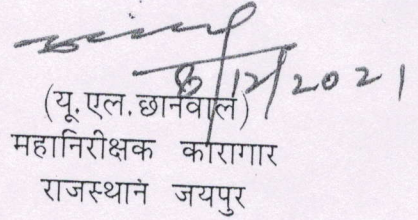 8/12/2021
(यू.एल.छानवाल)
महानिरीक्षक कारागार
राजस्थान जयपुर